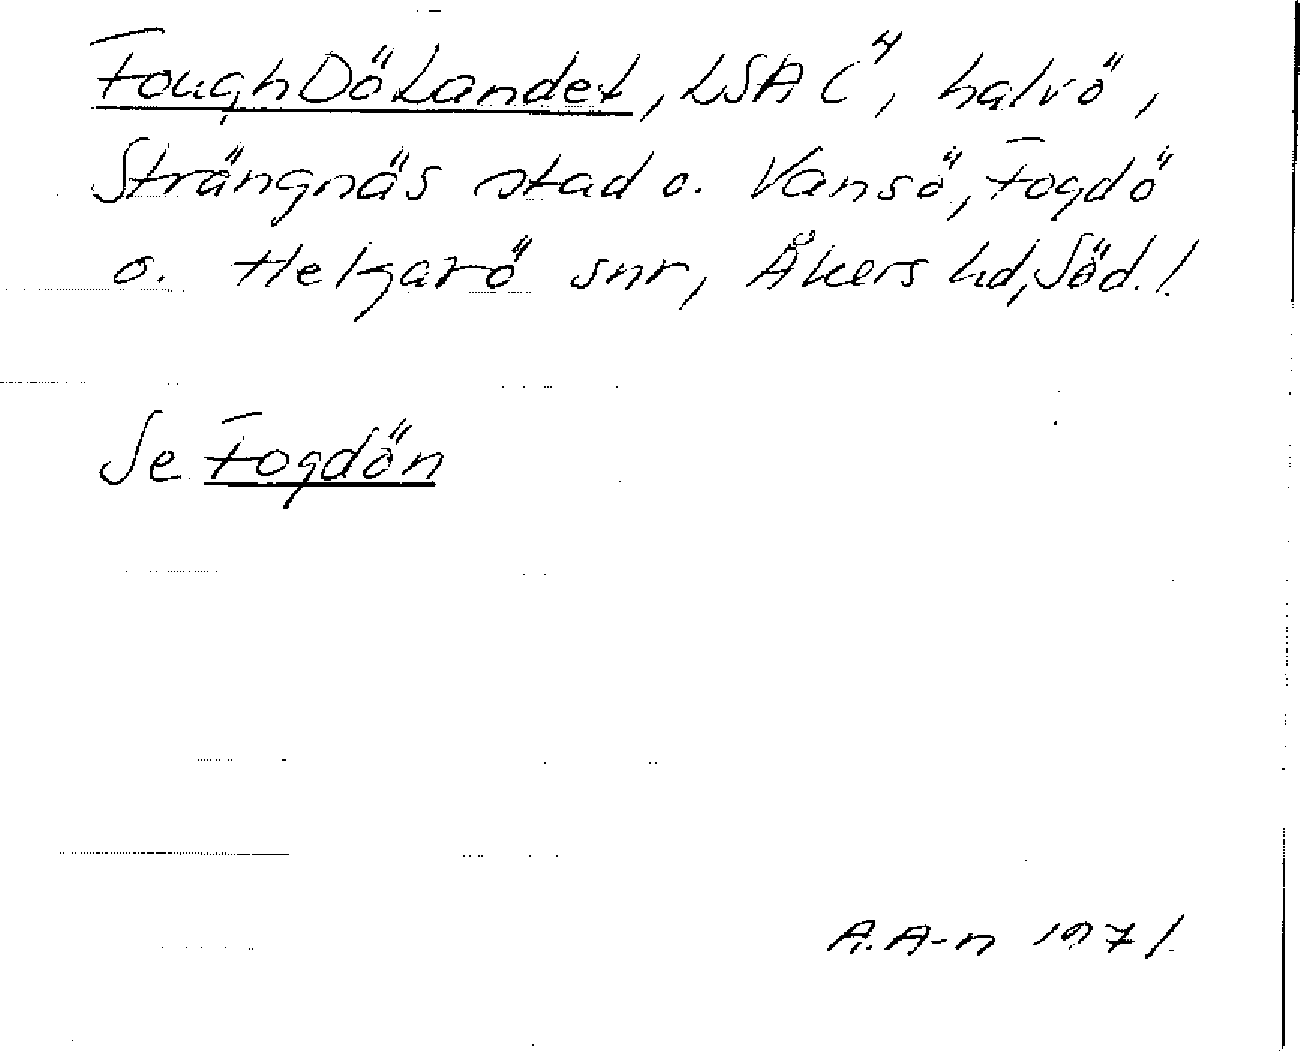 FoughDöLandet, LSA C4, halvö,
Strängnäs stad o. Vansö, Fogdö
o. Helgarö snr, Åkers hd, Söd.l.
Se Fogdön
A.A-n 1971